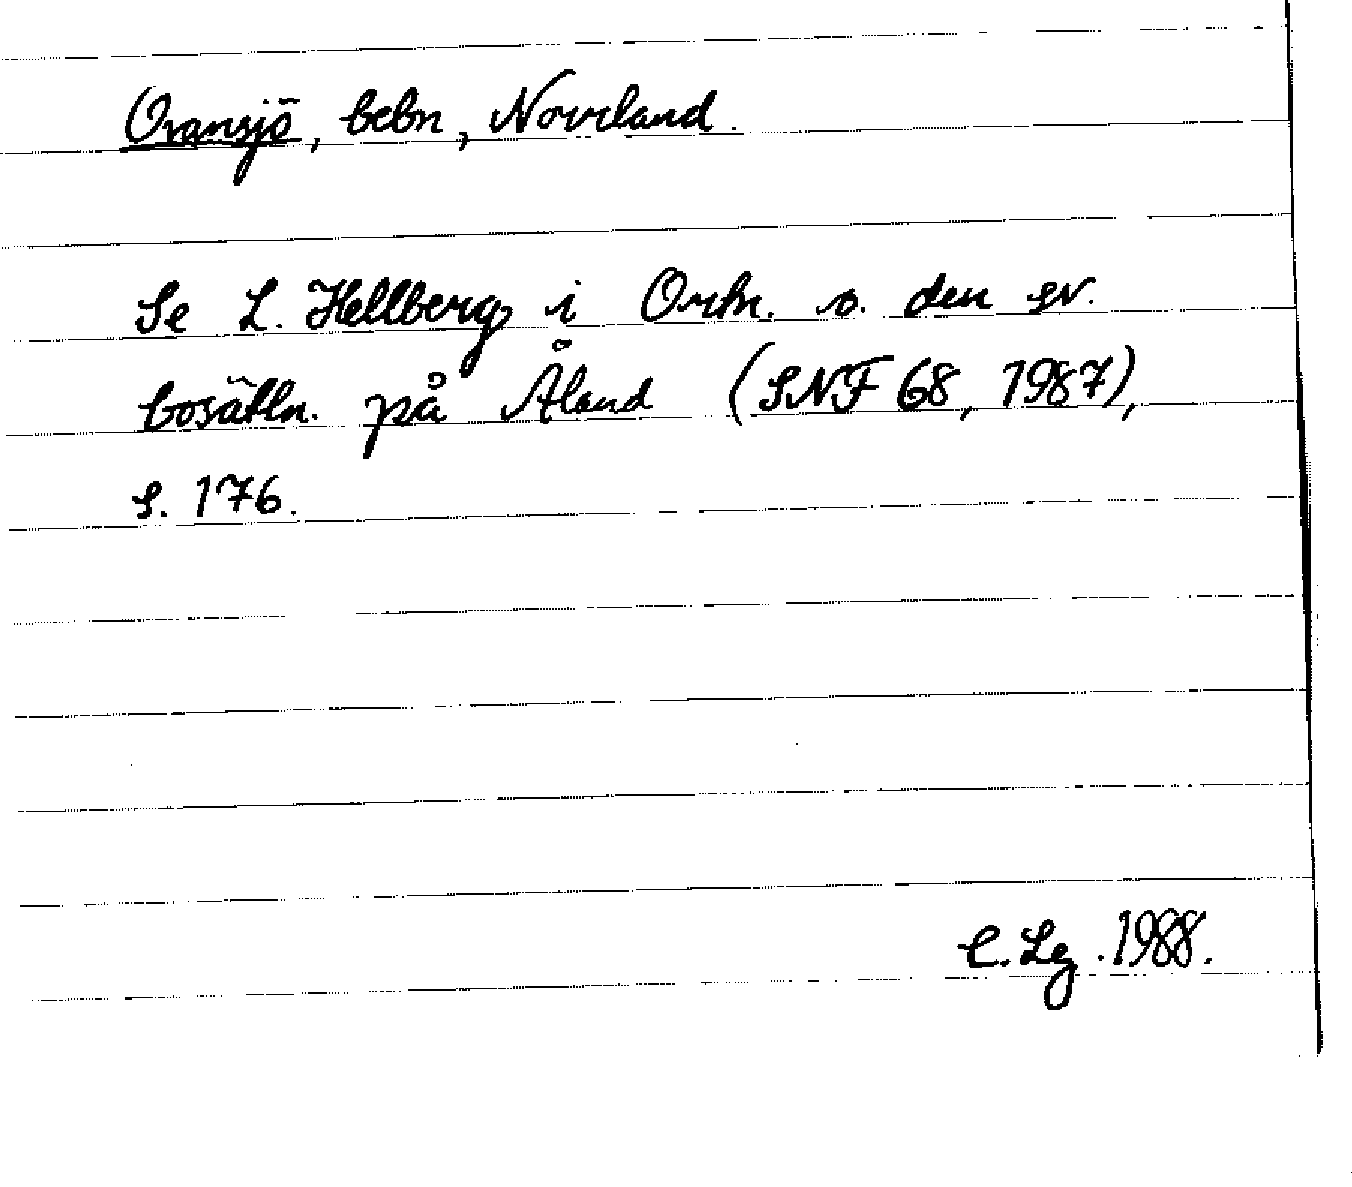 Oransjö, bebn, Norrland.
Se L. Hellberg i Ortn. o. den sv.
bosättn. på Åland (SNF 68, 1987),
s. 176.
C. Lg. 1988.